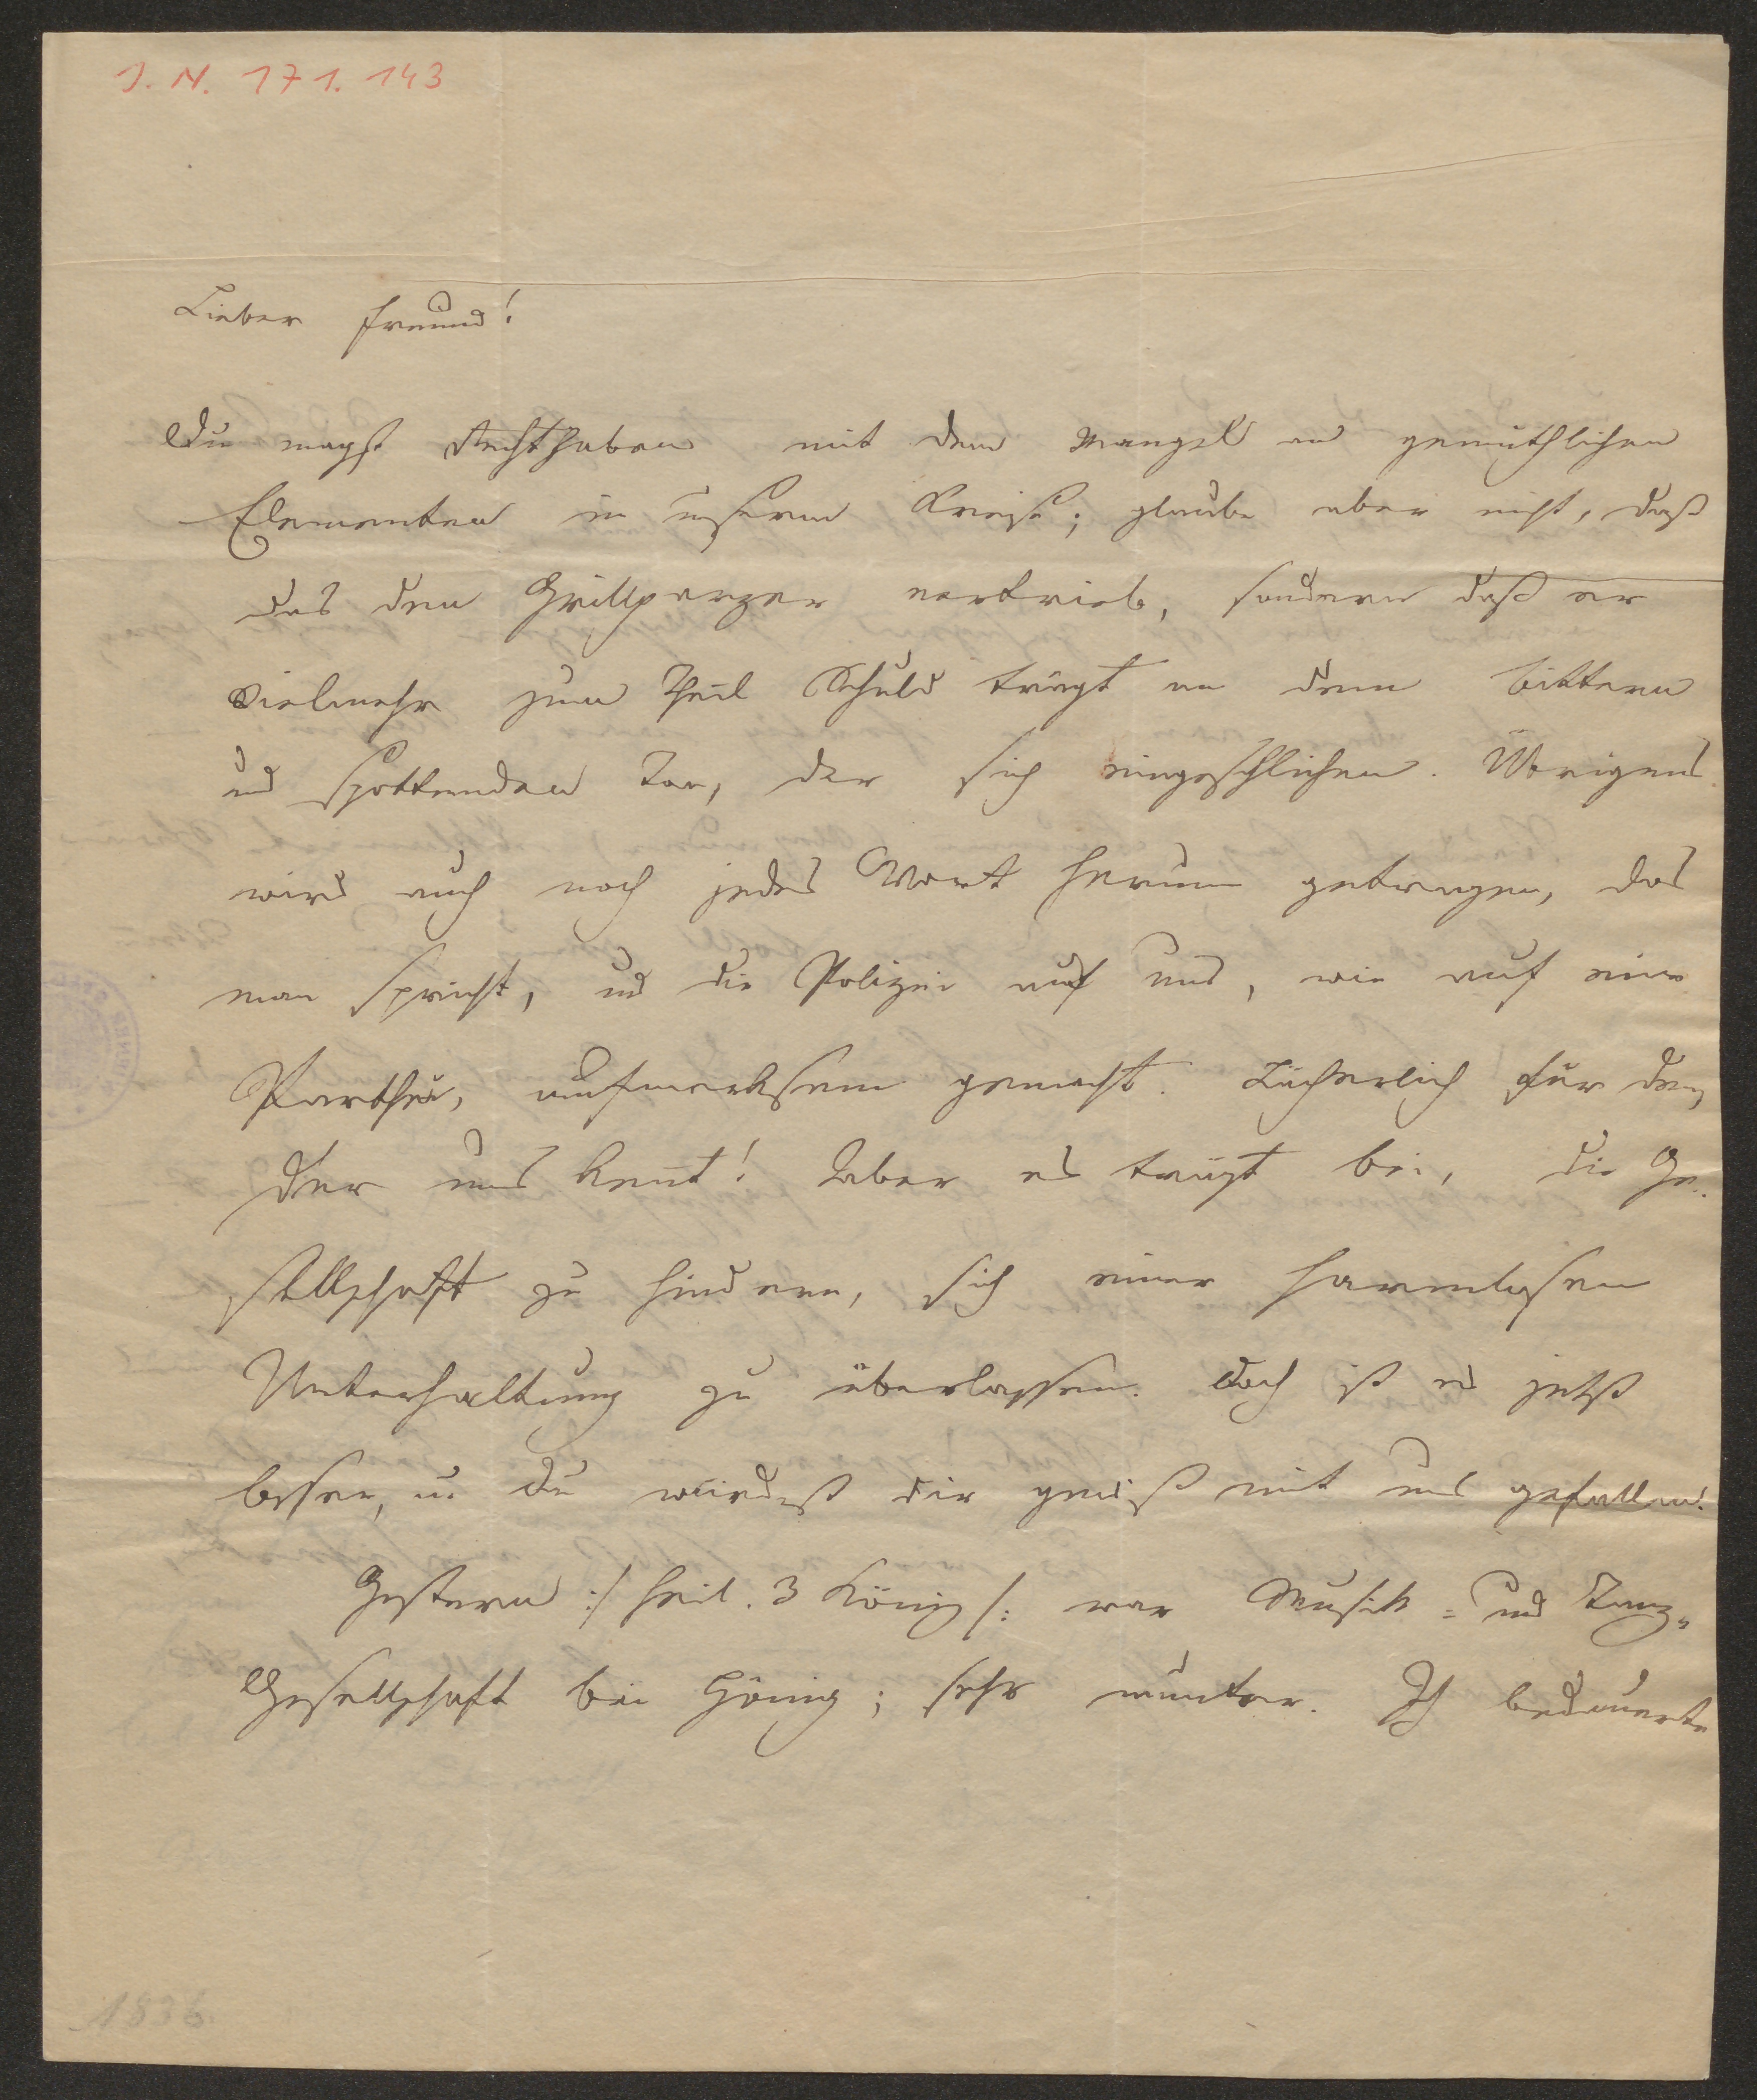 J. N. 171.143
Lieber Freund!
Du magst Recht haben mit dem Mangel an gemüthlichen
Elementen in unserm Kreise; glaube aber nicht, daß
das den Grillparzer vertrieb, sondern daß er
vielmehr zum Theil Schuld trägt an dem bittern
und spottenden Ton, der sich eingeschlichen. Übrigens
wird auch noch jedes Wort herum getragen, das
man spricht, und die Polizei auf uns, wie auf eine
Parthei, aufmerksam gemacht. Lächerlich für den,
der uns kennt! Aber es trägt bei, die Ge-
sellschaft zu hindern, sich einer harmlosen
Unterhaltung zu überlassen. Doch ist es jetzt
besser, u. du würdest dir gewiß mit uns gefallen.
Gestern :/ heil. 3 König /: war Musik- und Tanz-
Gesellschaft bei Hönig; sehr munter. Ich bedauerte
1836